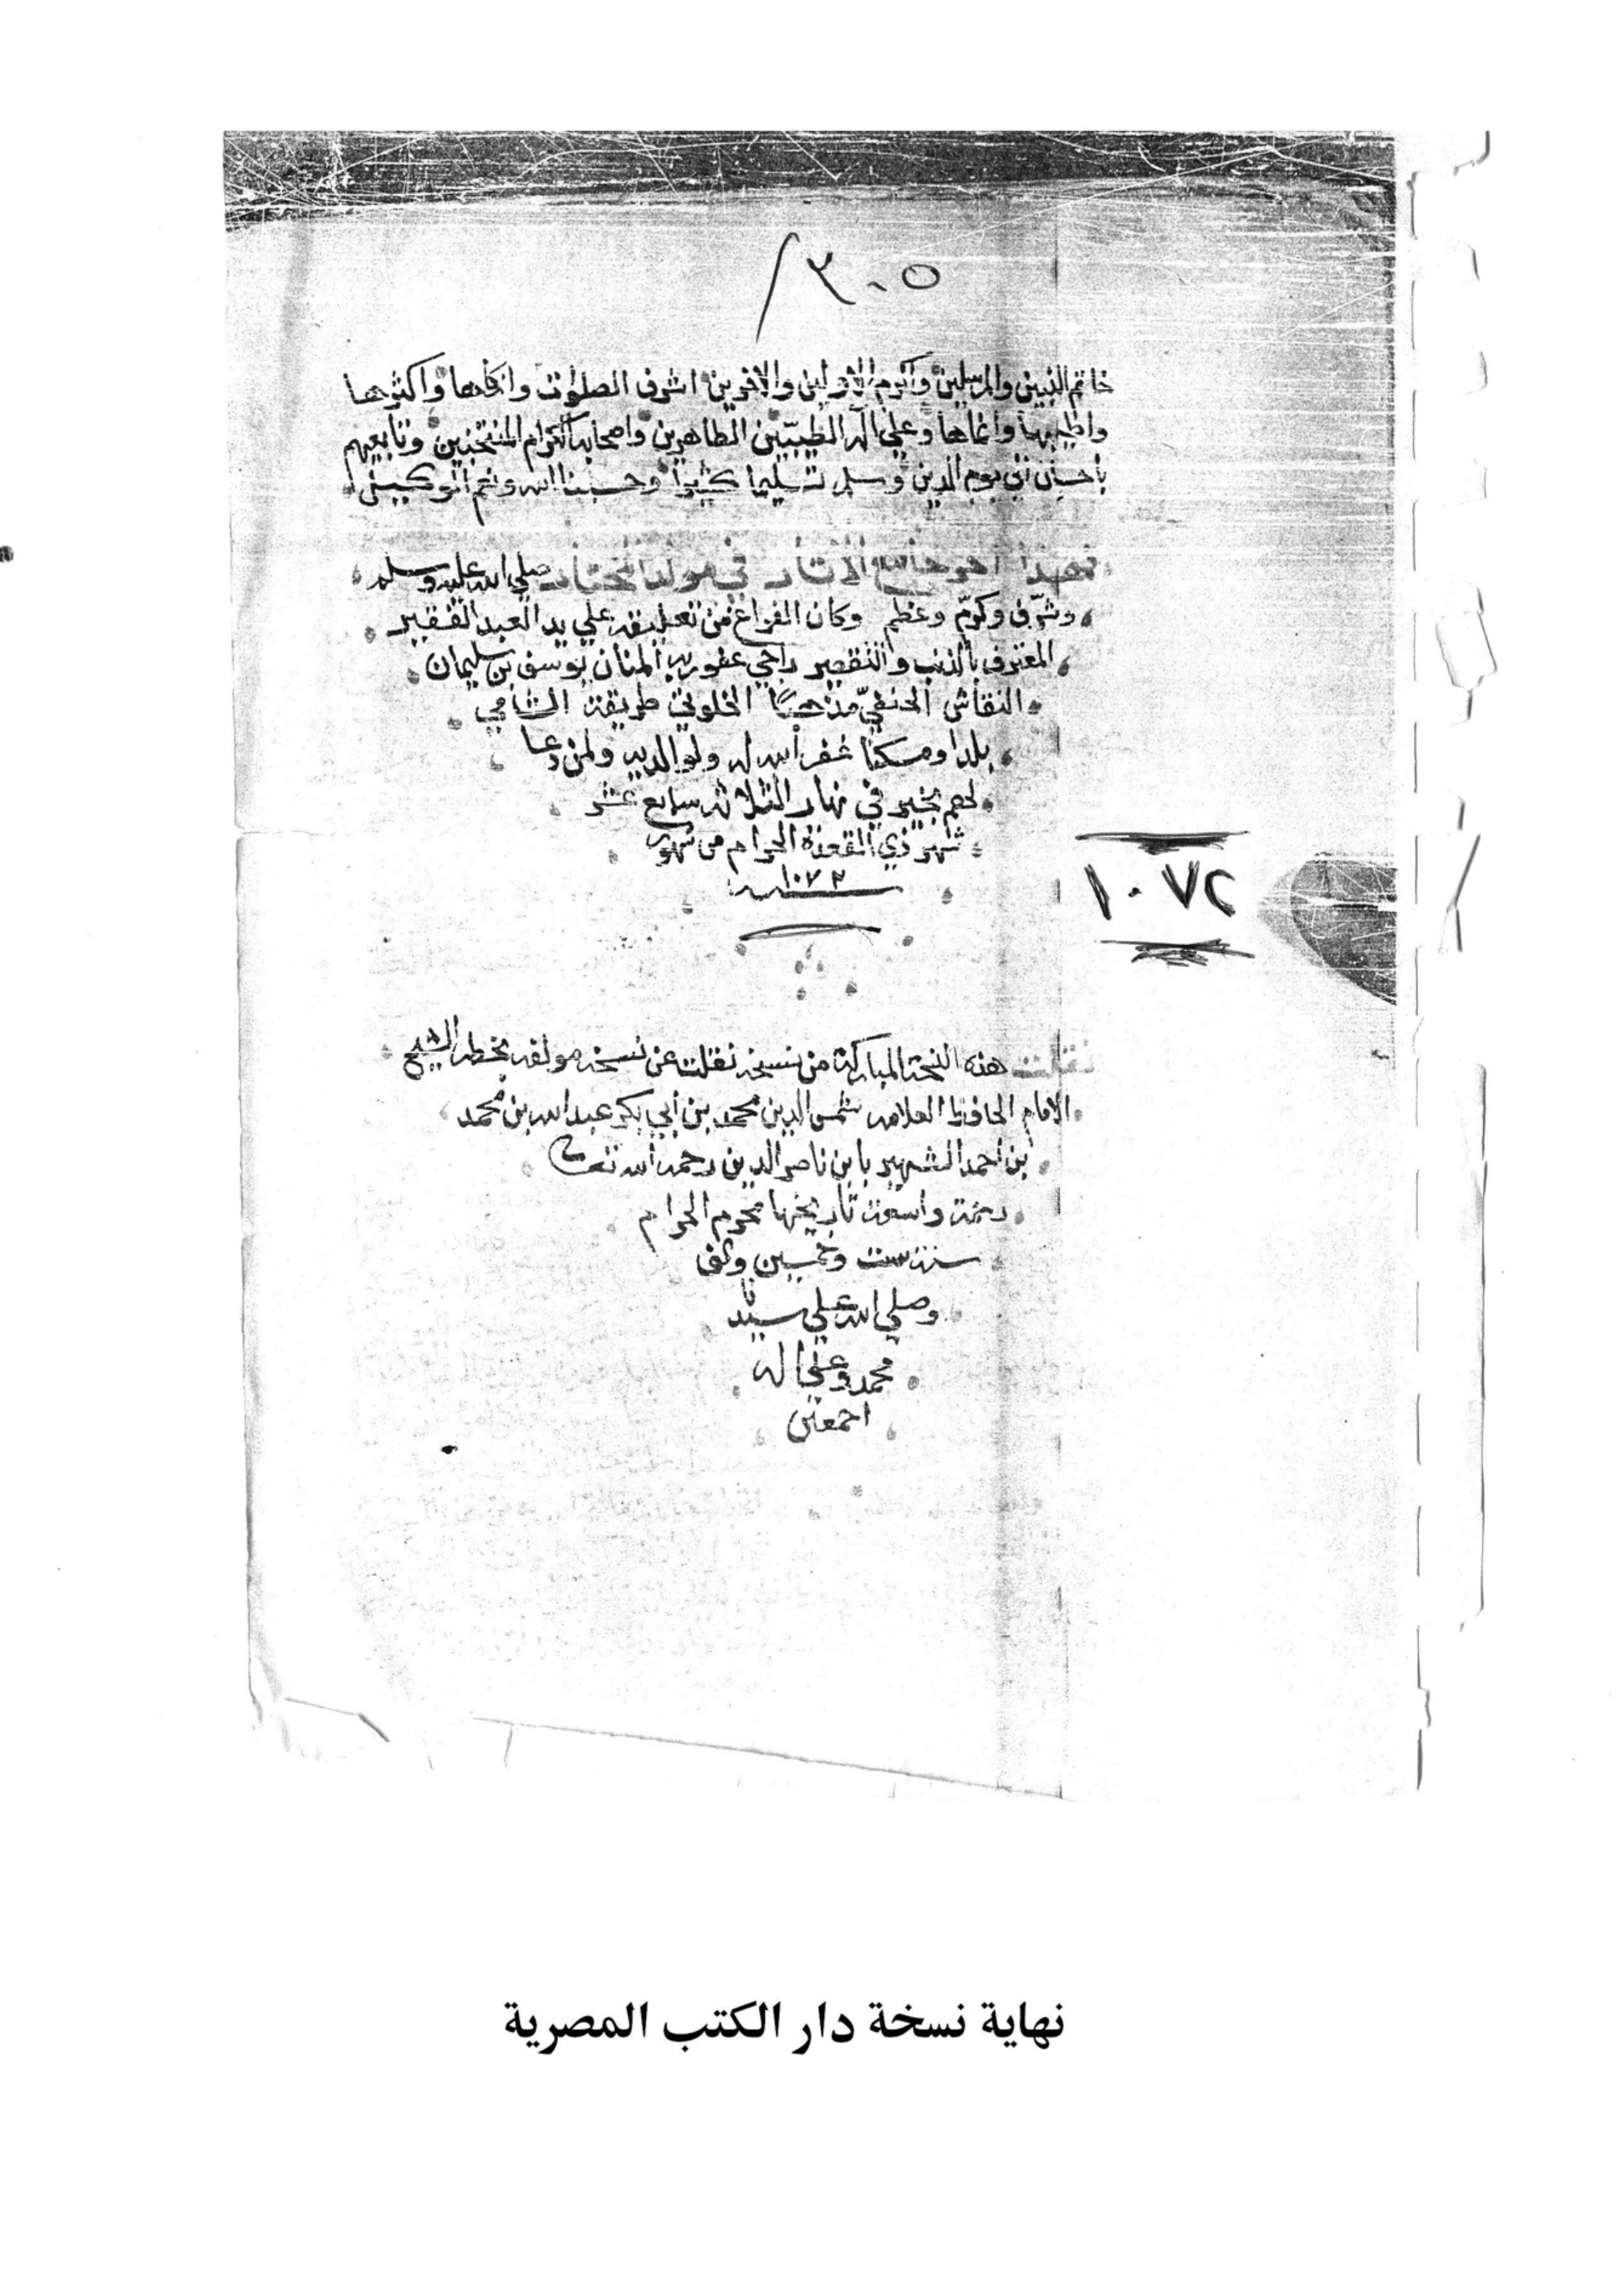 ٣٠٥
خاتم النبيين والمرسلين وأكرم الاولين والاخرين اشرف الصلوات وازكاها واكثرها
واطيبها وانماها وعلى اله الطيبين الطاهرين واصحابه الكرام المنتخبين وتابعيهم
باحسان الى يوم الدين وسلم تسليما كثيرا وحسبنا الله ونعم الوكيل
فهذا اخر جامع الآثار في مولد المختار صلى الله عليه وسلم
وشرّف وكرّم وعظم وكان الفراغ من تعليقه على يد العبد الفقير
المعترف بالذنب والتقصير راجي عفو ربه المنان يوسف بن سليمان
النقاش الحنفيّ مذهبًا الخلوتي طريقة الشامي
بلدا ومسكنا غفر الله له ولوالديه ولمن دعا
لهم بخير في نهار الثلاثه سابع عشر
شهر ذي القعدة الحرام من شهور
سنة ١٠٧٢
١٠٧٢
نقلت هذه النسخة المباركة من نسخة نقلت عن نسخة مولفه بخطه الشيخ
الامام الحافظ العلامه شمس الدين محمد بن أبي بكر عبد الله بن محمد
بن أحمد الشهير بابن ناصر الدين رحمه الله تعالى
رحمة واسعة تاريخها محرم الحرام
سنة ست وخمسين والف
وصلى الله على سيدنا
محمد وعلى اله
اجمعين
نهاية نسخة دار الكتب المصرية